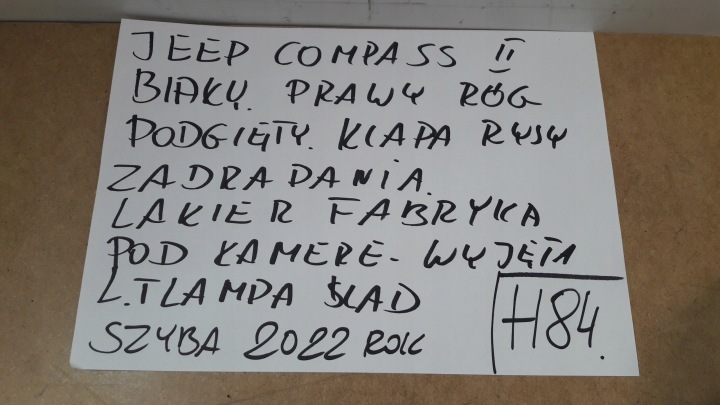 JEEP COMPASS II
BIAŁY. PRAWY RÓG
PODGIĘTY. KLAPA RYSY
ZADRAPANIA.
LAKIER FABRYKA
POD KAMERE - WYJĘTA
L.TLAMPA ŚLAD
SZYBA 2022 ROK
H84.